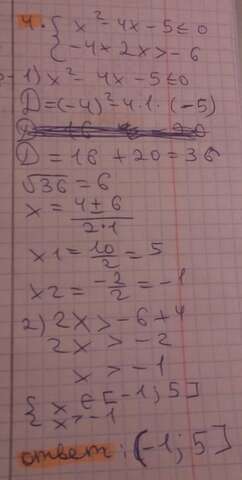 4. { x² - 4x - 5 ≤ 0
{ -4 x 2x > -6
1) x² - 4x - 5 ≤ 0
D = (-4)² - 4·1·(-5)
D = 16 + 20 = 36
√36 = 6
x = 4 ± 6 / 2·1
x1 = 10/2 = 5
x2 = -2/2 = -1
2) 2x > -6 + 4
2x > -2
x > -1
{ x ∈ [-1; 5]
{ x > -1
ответ: (-1; 5]